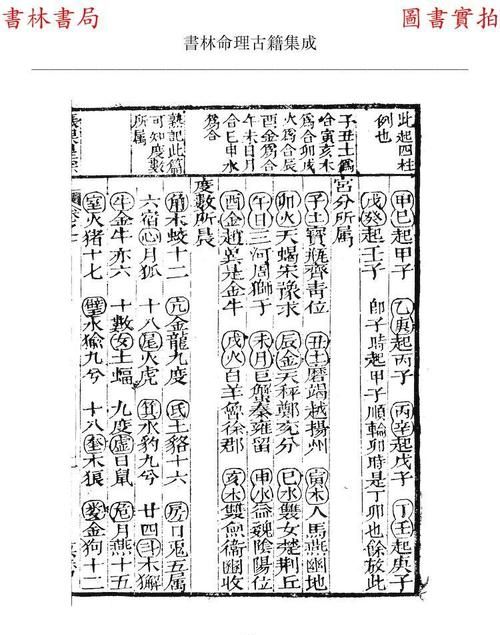 書林書局
圖書實拍
書林命理古籍集成
此起四柱
例也
子丑土爲
合寅亥木
爲合卯戌
火爲合辰
酉金爲合
午未日月
合巳申水
爲合
熟記此篇
可知度數
所属
甲己起甲子 乙庚起丙子 丙辛起戊子 丁壬起庚子
戊癸起壬子 即子時起甲子順輪卯時是丁卯也餘放此
宮分所属
子土寳瓶齊青位 丑土磨竭越揚州 寅木人馬燕幽地
卯火天蝎宋豫求 辰金天秤鄭兖分 巳水雙女楚荆丘
午日三河周獅子 未月巨蟹秦雍留 申水益魏陰陽位
酉金趙兾是金牛 戌火白羊魯徐郡 亥木雙魚衛幽收
度數所晨
角木蛟十二 亢金龍九度 氐土貉十六 房日兎五属
六宿心月狐 十八尾火虎 箕水豹九兮 廿四斗木獬
牛金牛亦六 十數女土蝠 九度虛日鼠 危月燕十五
室火猪十七 壁水㺄九兮 十八奎木狼 婁金狗十二